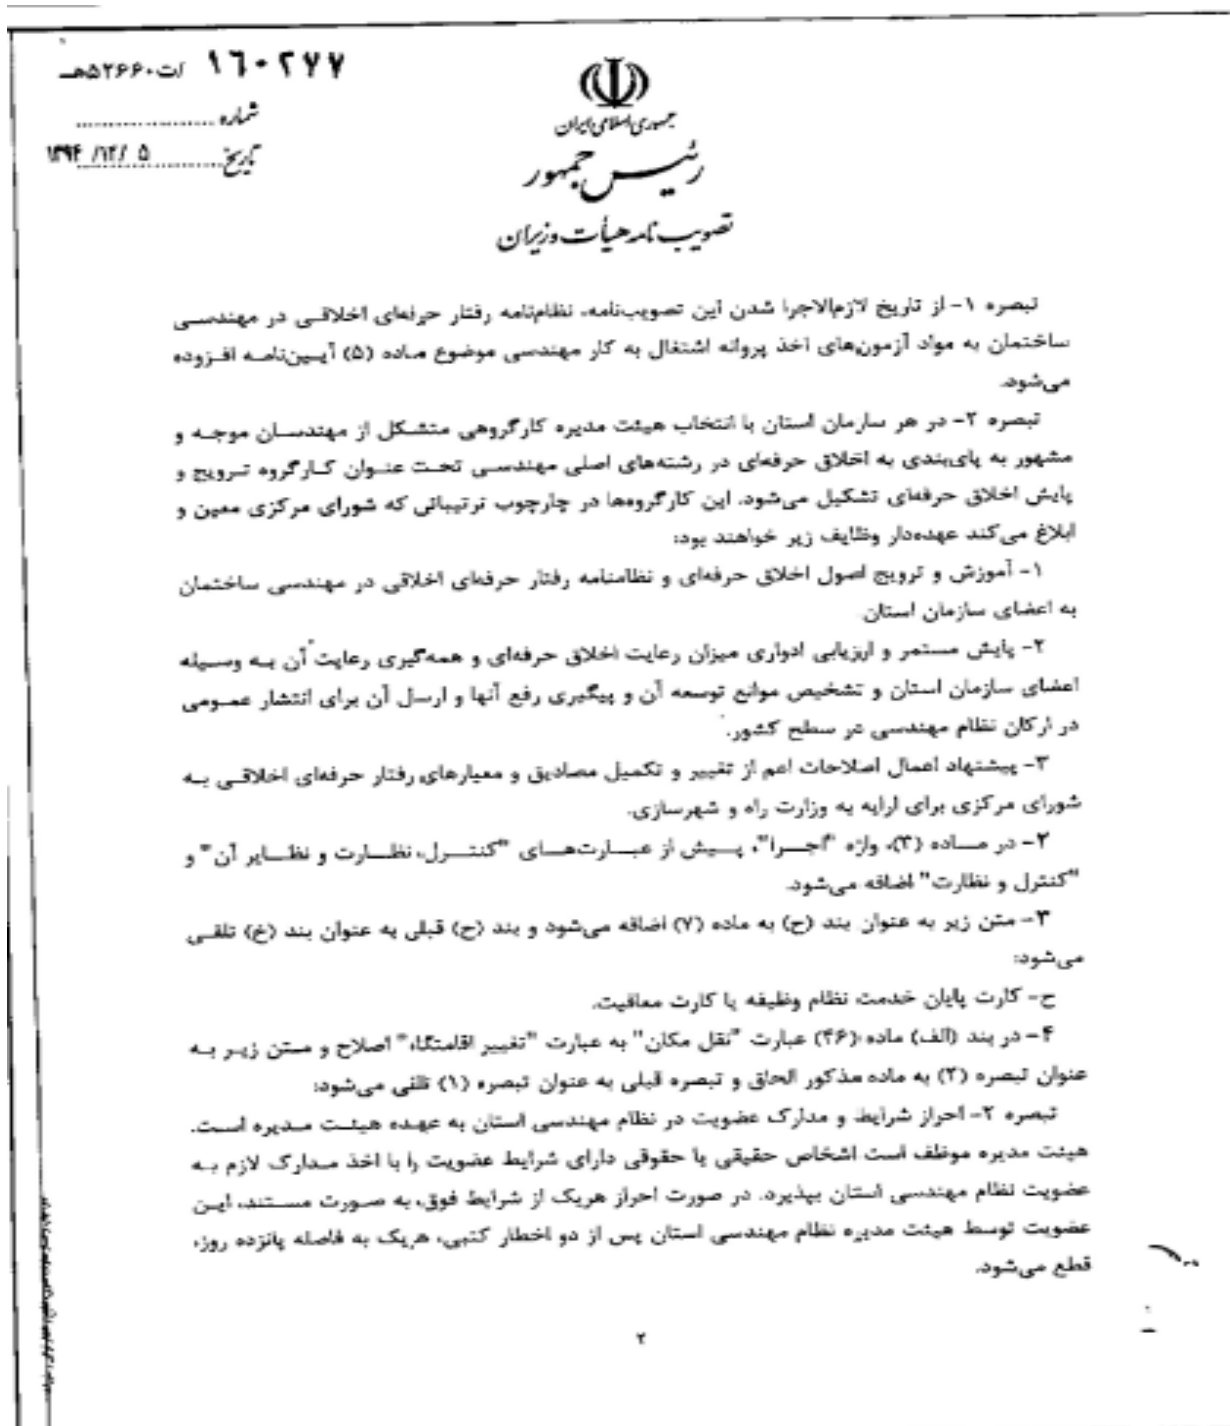 ۱۶۰۲۷۷ /ت۵۲۶۶۰هـ
شماره
تاریخ ۱۳۹۴/۱۲/۵
جمهوری اسلامی ایران
رئیس جمهور
تصویب نامه هیأت وزیران
تبصره ۱- از تاریخ لازم‌الاجرا شدن این تصویب‌نامه، نظام‌نامه رفتار حرفه‌ای اخلاقی در مهندسی
ساختمان به مواد آزمون‌های اخذ پروانه اشتغال به کار مهندسی موضوع ماده (۵) آیین‌نامه افزوده
می‌شود.
تبصره ۲- در هر سازمان استان با انتخاب هیئت مدیره کارگروهی متشکل از مهندسان موجه و
مشهور به پای‌بندی به اخلاق حرفه‌ای در رشته‌های اصلی مهندسی تحت عنوان کارگروه ترویج و
پایش اخلاق حرفه‌ای تشکیل می‌شود. این کارگروه‌ها در چارچوب ترتیباتی که شورای مرکزی معین و
ابلاغ می‌کند عهده‌دار وظایف زیر خواهند بود:
۱- آموزش و ترویج اصول اخلاق حرفه‌ای و نظامنامه رفتار حرفه‌ای اخلاقی در مهندسی ساختمان
به اعضای سازمان استان
۲- پایش مستمر و ارزیابی ادواری میزان رعایت اخلاق حرفه‌ای و همه‌گیری رعایت آن به وسیله
اعضای سازمان استان و تشخیص موانع توسعه آن و پیگیری رفع آنها و ارسال آن برای انتشار عمومی
در ارکان نظام مهندسی در سطح کشور.
۳- پیشنهاد اعمال اصلاحات اعم از تغییر و تکمیل مصادیق و معیارهای رفتار حرفه‌ای اخلاقی به
شورای مرکزی برای ارایه به وزارت راه و شهرسازی.
۲- در ماده (۳)، واژه "اجرا"، پیش از عبارت‌های "کنترل، نظارت و نظایر آن" و
"کنترل و نظارت" اضافه می‌شود.
۳- متن زیر به عنوان بند (ح) به ماده (۷) اضافه می‌شود و بند (ح) قبلی به عنوان بند (خ) تلقی
می‌شود:
ح- کارت پایان خدمت نظام وظیفه یا کارت معافیت.
۴- در بند (الف) ماده (۴۶) عبارت "نقل مکان" به عبارت "تغییر اقامتگاه" اصلاح و متن زیر به
عنوان تبصره (۲) به ماده مذکور الحاق و تبصره قبلی به عنوان تبصره (۱) تلقی می‌شود:
تبصره ۲- احراز شرایط و مدارک عضویت در نظام مهندسی استان به عهده هیئت مدیره است.
هیئت مدیره موظف است اشخاص حقیقی یا حقوقی دارای شرایط عضویت را با اخذ مدارک لازم به
عضویت نظام مهندسی استان بپذیرد. در صورت احراز هریک از شرایط فوق، به صورت مستند، این
عضویت توسط هیئت مدیره نظام مهندسی استان پس از دو اخطار کتبی، هریک به فاصله پانزده روز،
قطع می‌شود.
۲